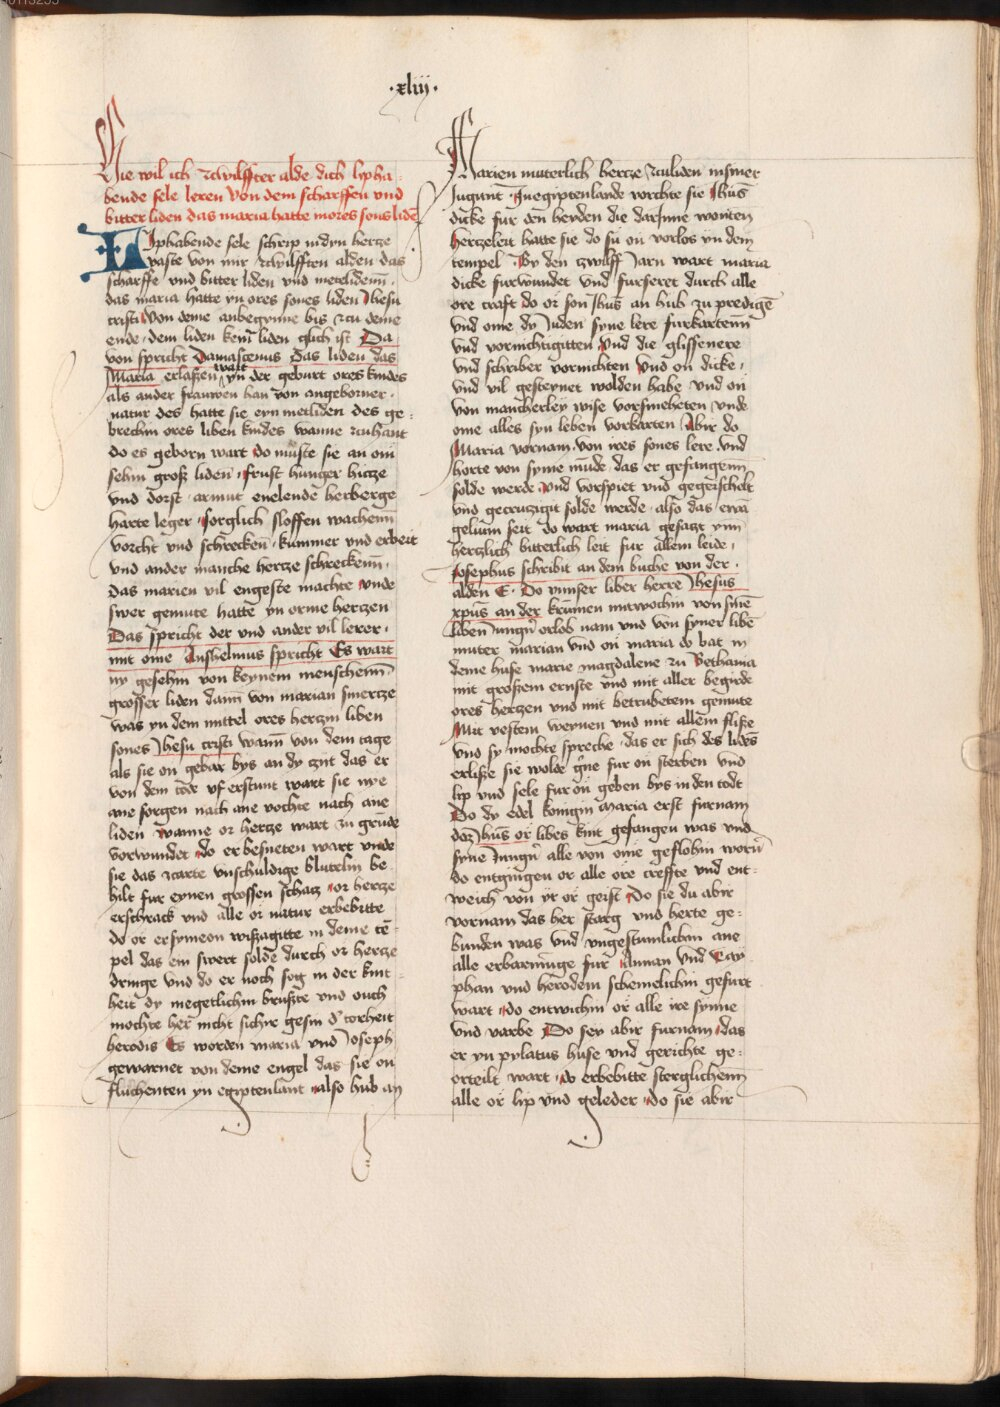 ·xliij·
Hie wil ich zcwilffter alde dich lypha-
bende sele leren von dem scharffen vnd
bitter liden das maria hatte in ores sons lide
Liphabende sele schrip in dyn hertze
vaste von mir zcwilfften alden das
scharffe vnd bitter liden vnd meteliden
das maria hatte yn ores sones liden Jhesu
cristi von deme anbegynne bis zcu deme
ende, dem liden kein liden glich ist Da
von spricht Damascenus Das liden das
Maria erlassen wart yn der geburt ores kindes
als ander frauwen han von angeborner
natur des hatte sie eyn metliden des ge-
brechin ores liben kindes wanne zcuhant
do es geborn wart do muste sie an om
sehin groß liden frust hunger hitze
vnd dorst armut enelende herberge
harte leger sorglich sloffen wachenn
vorcht vnd schrecken kummer vnd erbeit
vnd ander manche hertze schreckenn
das marien vil engeste machte vnde
swer gemute hatte yn orme hertzen
Das spricht der vnd ander vil lerer
mit ome Anshelmus spricht Es wart
ny gesehin von keynem menschenn
grosser liden dann von marian smertze
was yn dem mittel ores hertzin liben
sones Jhesu cristi wann von dem tage
als sie on gebar bys an dy tzyt das er
von dem tode vf erstunt wart sie nye
ane sorgen nach ane vochte nach ane
liden wanne or hertze wart zu grunde
vorwundet do er besneten wart vnde
sie das zcarte vnschuldige blutelin be-
hilt fur eynen grossen schatz or hertze
erschrack vnd alle or natur erbebitte
do or er symeon wißagitte in deme te-
pel das ein swert solde durch or hertze
dringe vnd do er noch sog in der kint
heit dy megetlichin brußte vnd ouch
mochte her nicht sichre gesin d' torheit
herodis Es worden maria vnd Joseph
gewarnet von deme engel das sie on
fluchenten yn egiptenlant also hub an
Marien muterlich hertze zculiden in siner
Jugunt In egiptenlande vorchte sie Jhus
dicke fur den heyden die darinne wonten
hertzeleit hatte sie do su on vorlos yn dem
tempel By den zwilff Jarn wart maria
dicke furwundet vnd furseret durch alle
ore craft do or son Jhus an hub zu predige
vnd ome dy Juden syne lere furkartenn
vnd vornichtigitten vnd die glissenere
vnd schriber vornichten vnd on dicke
vnd vil gesteynet wolden habe vnd on
von mancherley wise vorsmeheten vnde
ome alles syn leben vorkarten Abir do
Maria vornam von ires sones lere vnd
horte von syme mude das er gefangenn
solde werde vnd vorspiet vnd gegerschelt
vnd gecruzigit solde werde also das ewa
gelium seit do wart maria gesagt ynn
hertzlich bitterlich leit fur allem leide
Josephus schribit an dem buche von der
alden E Do vnnser liber herre Jhesus
xpus an der krummen mitwochin von sine
liben Jungern orlob nam vnd von syner libe
muter marian vnd on maria do bat in
deme huse marie magdalene zu Bethania
mit großem ernste vnd mit aller begirde
ores hertzen vnd mit betrubetem gemute
Mit vestem weynen vnd mit allem fliße
vnd sy mochte spreche das er sich des lides
erliße sie wolde gerne fur on sterben vnd
lip vnd sele fur on geben bys in den todt
Do dy edel konigin maria erst furnam
daz Jhus or libes kint gefangen was vnd
syne Jungern alle von ome geflohin worn
do entgingen or alle ore creffte vnd ent-
weich von yr or geist Do sie du abir
vornam das her starg vnd herte ge-
bunden was vnd vngestumlichin ane
alle erbarmunge fur Annan vnd Cay
phan vnd herodem schemelichin gefurt
wart do entwichin or alle ire synne
vnd varbe Do sey abir furnam das
er yn pylatus huse vnd gerichte ge-
orteilt wart do erbebitte sterglichenn
alle or lip vnd geleder do sie abir